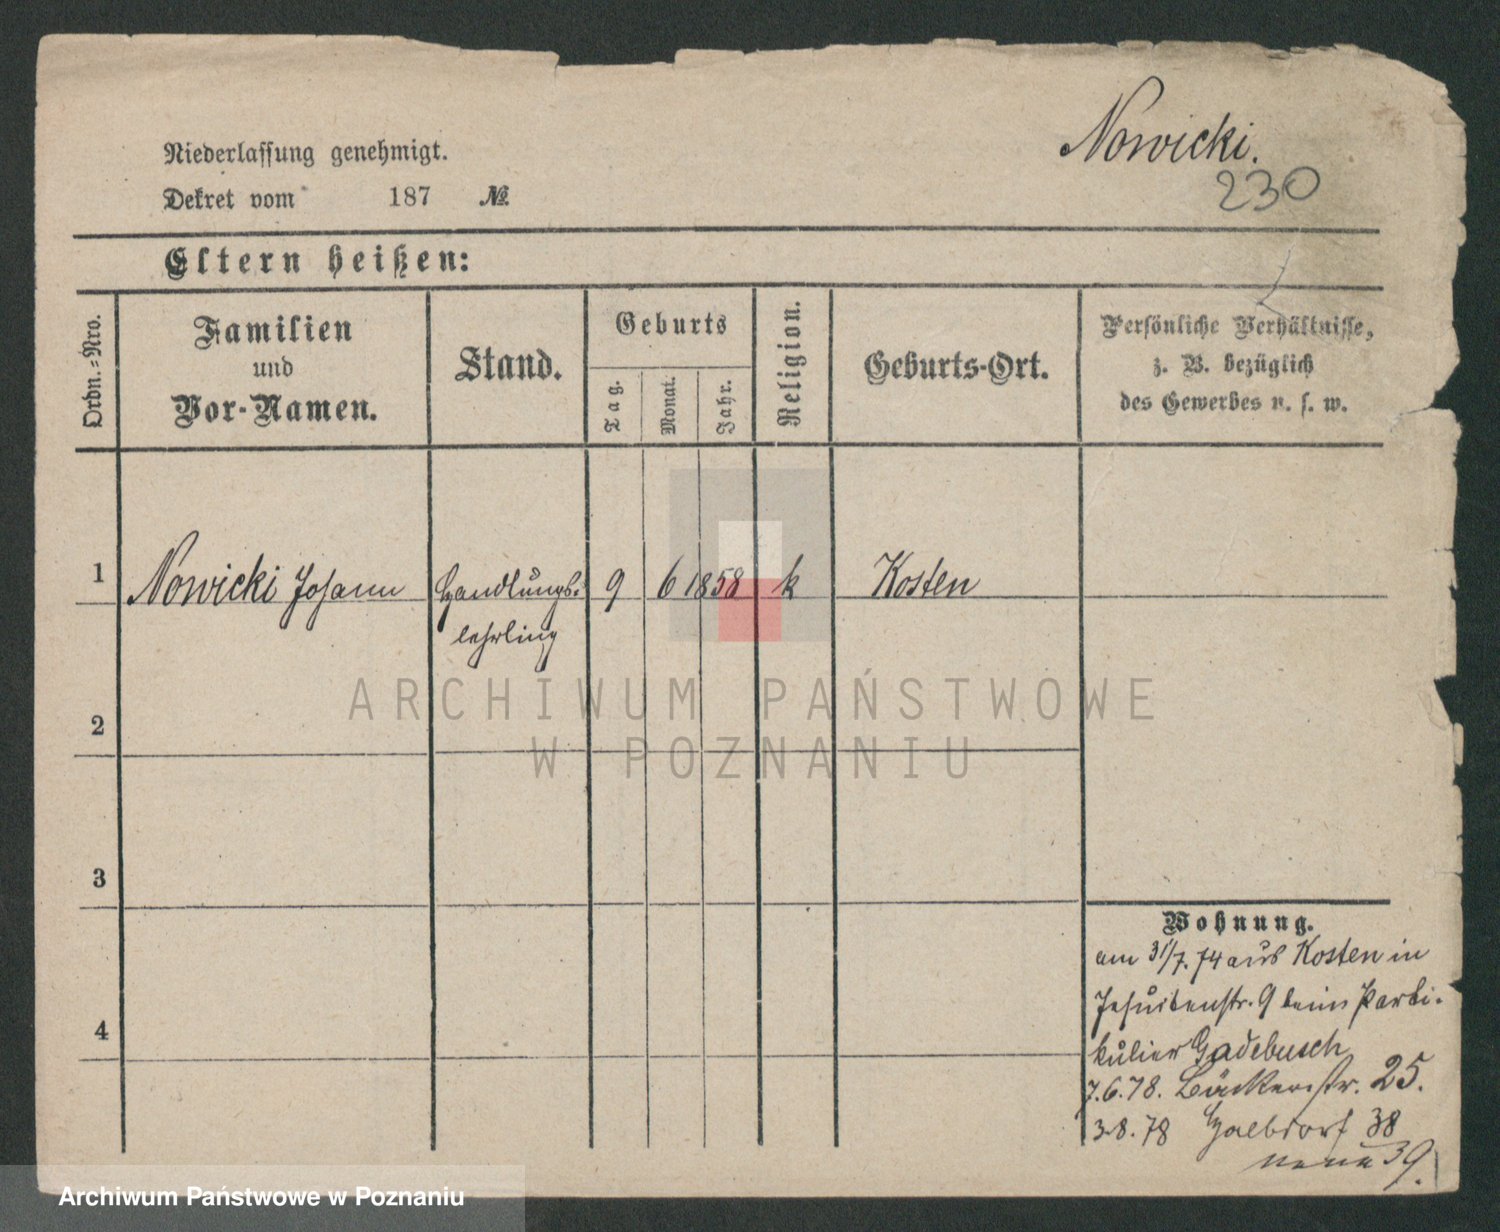 Nowicki.
230
Niederlassung genehmigt.
Dekret vom 187 №
Eltern heißen:
Ordn.=Nro.
Familien
und
Vor-Namen.
Stand.
Geburts
Tag.
Monat.
Jahr.
Religion.
Geburts-Ort.
Persönliche Verhältnisse,
z. B. bezüglich
des Gewerbes u. s. w.
1 Nowicki Johann Handlungs- 9 6 1858 k Kosten
lehrling
2
3
4
Wohnung.
am 31/7.74 aus Kosten in
Jesuitenstr. 9 beim Parti-
kulier Gadebusch
7.6.78. Bäckerstr. 25.
3.8.78 Halbdorf 38
neue 39.
ARCHIWUM PAŃSTWOWE
W POZNANIU
Archiwum Państwowe w Poznaniu